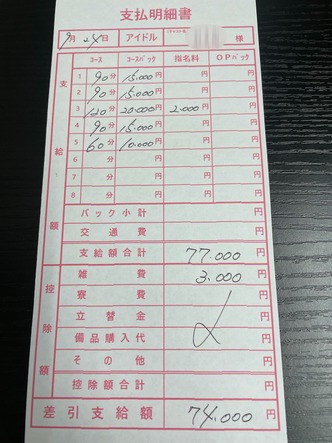 支払明細書
9月24日 アイドル 様
支給額
コース コースバック 指名料 OPバック
1 90分 15.000円 円 円
2 90分 15.000円 円 円
3 120分 20.000円 2.000円 円
4 90分 15.000円 円 円
5 60分 10.000円 円 円
6 分 円 円 円
7 分 円 円 円
8 分 円 円 円
バック小計 円
交通費 円
支給額合計 77.000円
控除額
雑費 3.000円
寮費 円
立替金 円
備品購入代 円
その他 円
控除額合計 円
差引支給額 74.000円